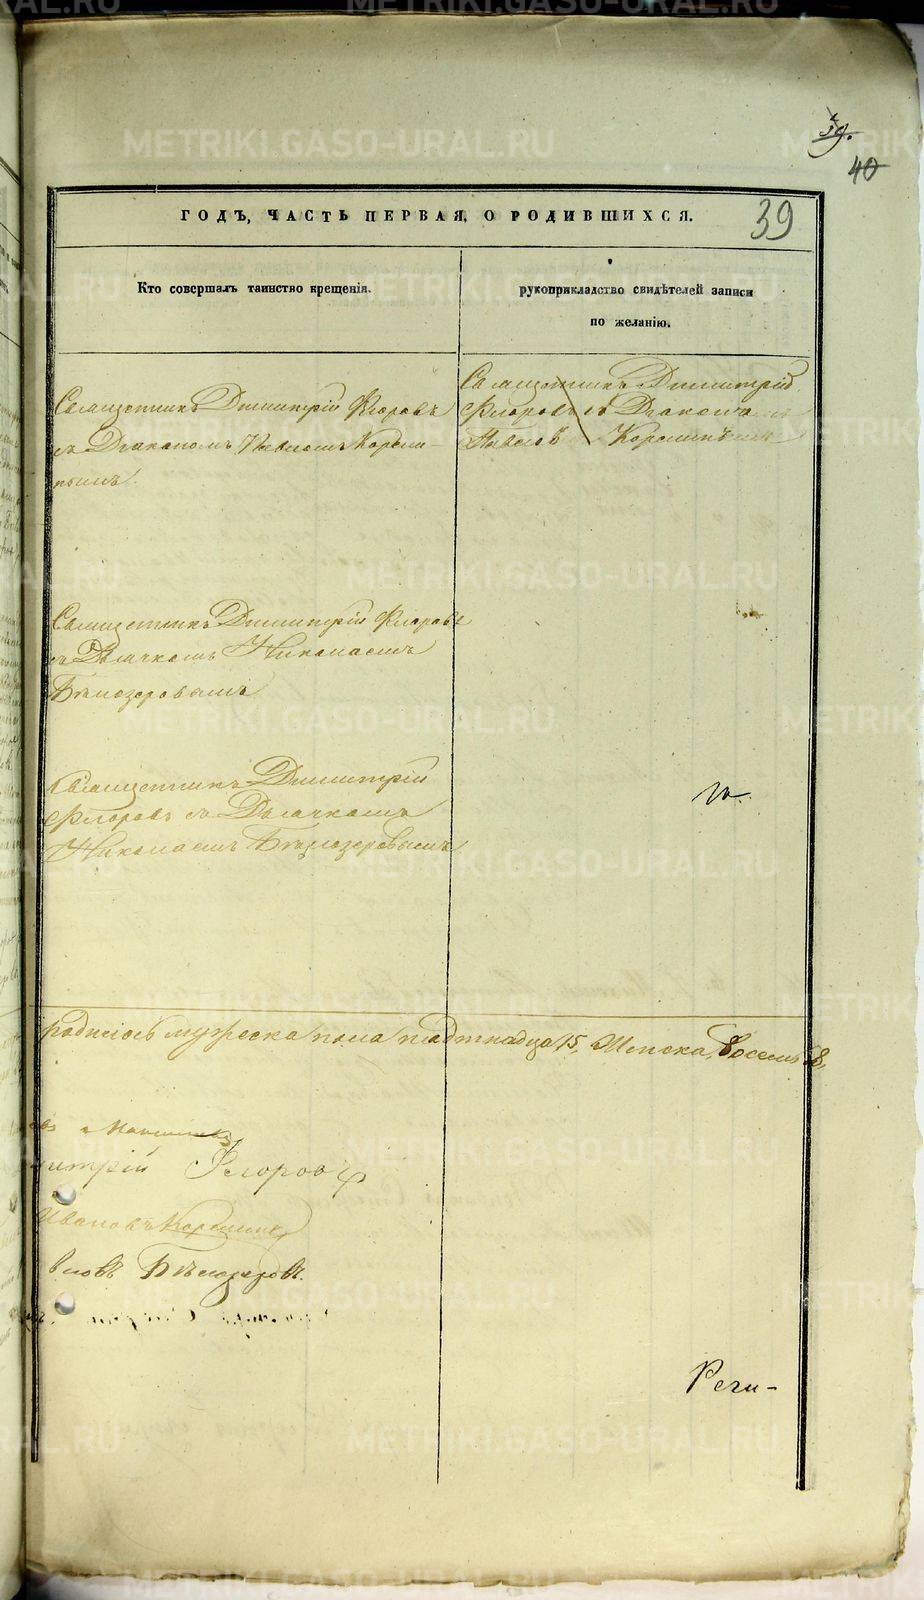 39.
40
ГОДЪ, ЧАСТЬ ПЕРВАЯ, О РОДИВШИХСЯ.
39
Кто совершалъ таинство крещенія.
рукоприкладство свидѣтелей записи
по желанію.
Священникъ Димитрій Флоровъ
съ Діакономъ Павломъ Корели-
нымъ.
Священникъ Димитрій
Флоровъ съ Діакономъ
Священникъ Димитрій Флоровъ
съ Дьячкомъ Николаемъ
Бѣлозеровымъ
Священникъ Димитрій
Флоровъ съ Дьячкомъ
Николаемъ Бѣлозеровымъ
родилось мужеска пола пятнадцать 15, Женска, восемь 8,
итрій Флоровъ
Ивановъ
Бѣлозеровъ.
Реги-
METRIKI.GASO-URAL.RU